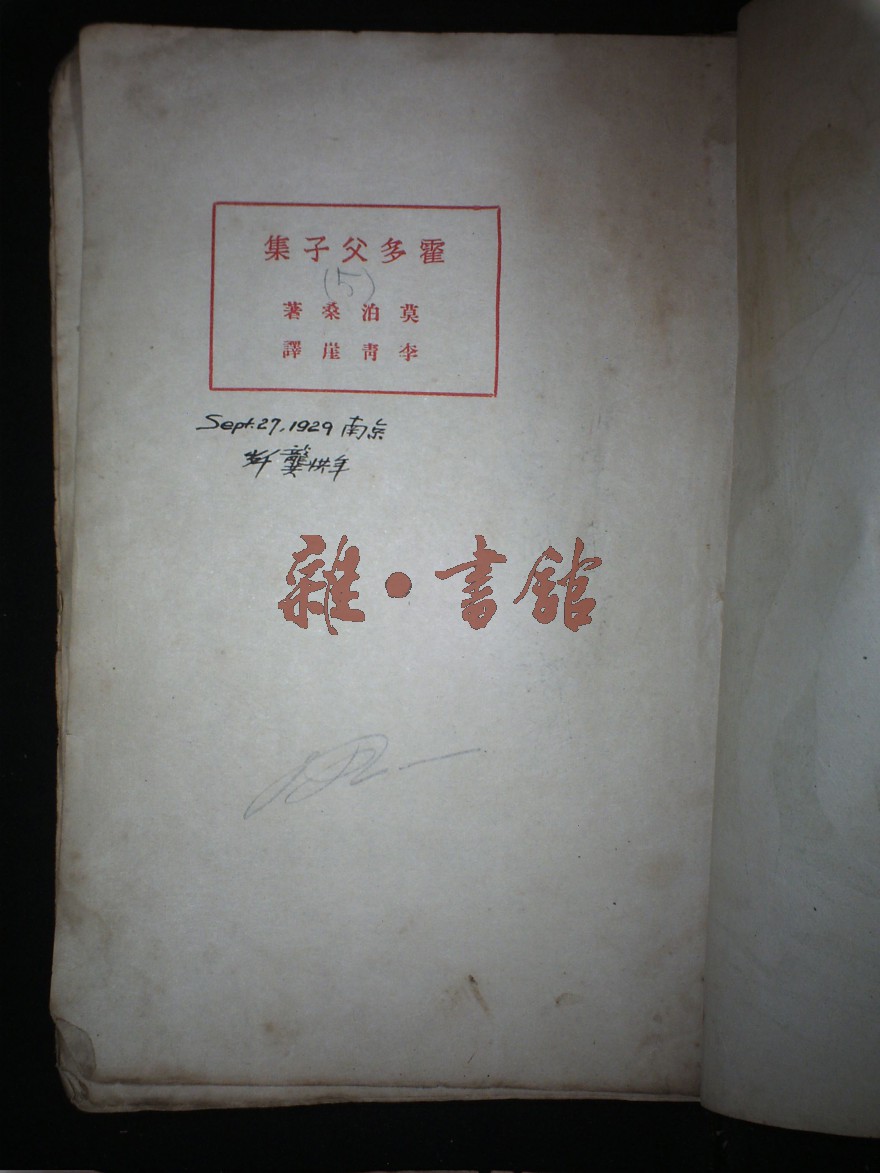 霍多父子集
(5)
莫泊桑著
李青崖譯
Sept. 27, 1929 南京
龔
雜·書館